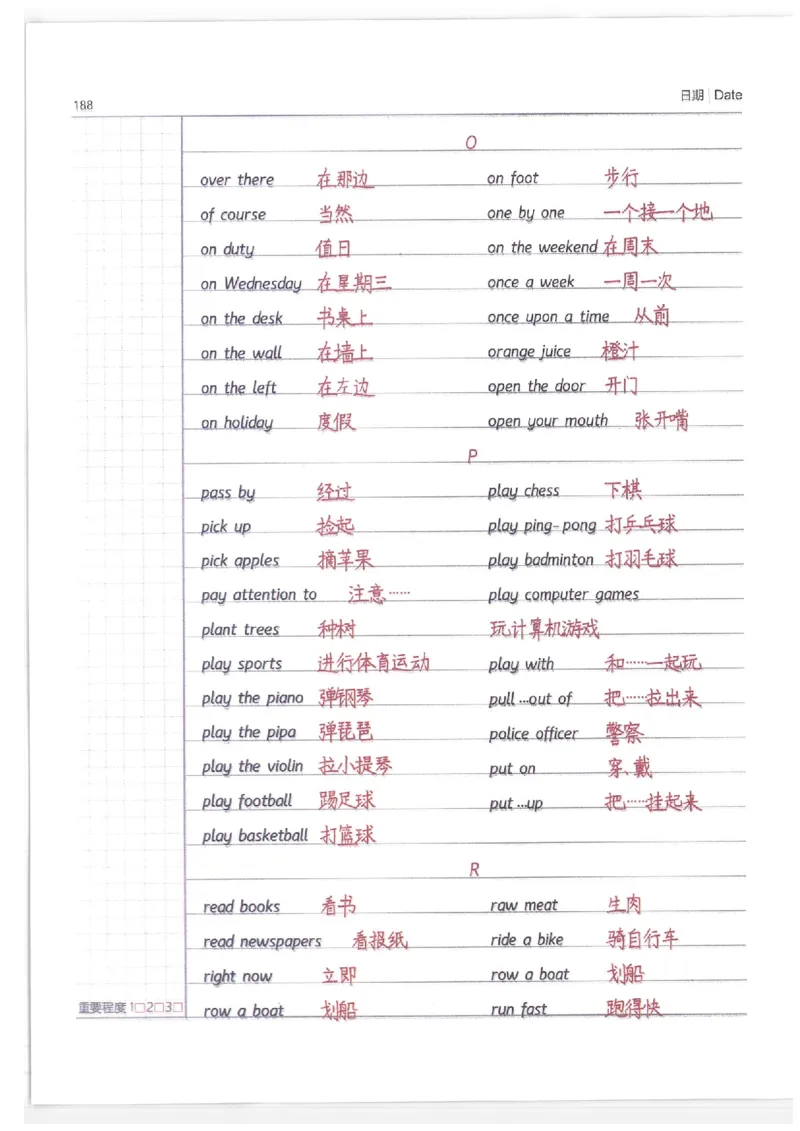 188
日期 | Date
O
over there 在那边 on foot 步行
of course 当然 one by one 一个接一个地
on duty 值日 on the weekend 在周末
on Wednesday 在星期三 once a week 一周一次
on the desk 书桌上 once upon a time 从前
on the wall 在墙上 orange juice 橙汁
on the left 在左边 open the door 开门
on holiday 度假 open your mouth 张开嘴
P
pass by 经过 play chess 下棋
pick up 捡起 play ping-pong 打乒乓球
pick apples 摘苹果 play badminton 打羽毛球
pay attention to 注意…… play computer games
plant trees 种树 玩计算机游戏
play sports 进行体育运动 play with 和……一起玩
play the piano 弹钢琴 pull …out of 把……拉出来
play the pipa 弹琵琶 police officer 警察
play the violin 拉小提琴 put on 穿、戴
play football 踢足球 put …up 把……挂起来
play basketball 打篮球
R
read books 看书 raw meat 生肉
read newspapers 看报纸 ride a bike 骑自行车
right now 立即 row a boat 划船
重要程度 1□2□3□ row a boat 划船 run fast 跑得快